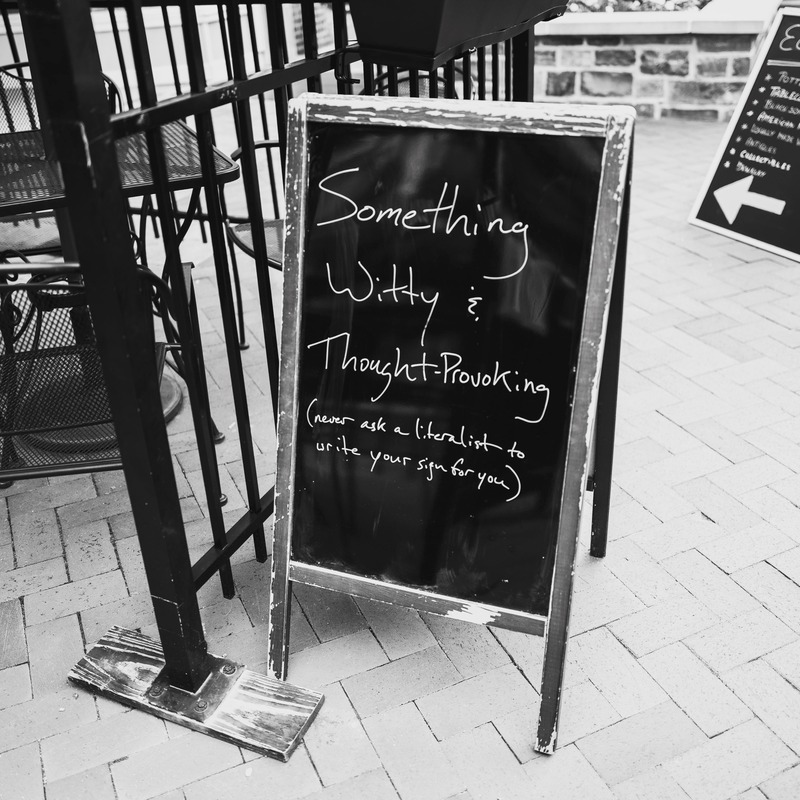 Something
Witty &
Thought-Provoking
(never ask a literalist to
write your sign for you)
AMERICAN
ANTIQUES
COLLECTIBLES
JEWELRY